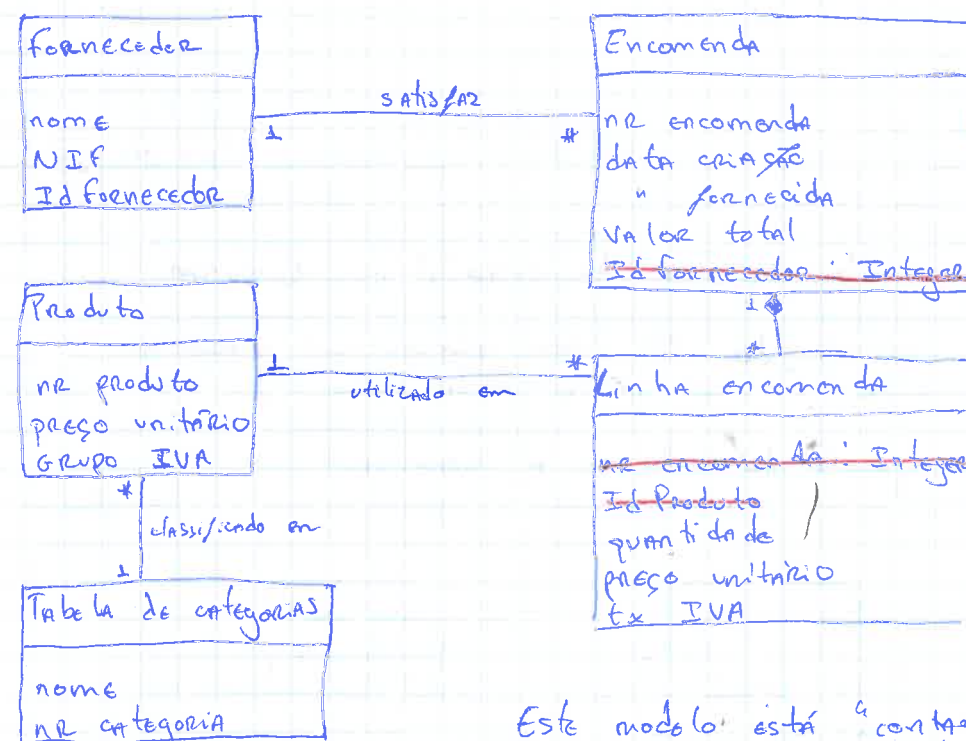 Fornecedor
nome
NIF
Id fornecedor
satisfaz
1
*
Encomenda
nr encomenda
data criação
" fornecida
valor total
Id fornecedor : Integer
1
*
Produto
nr produto
preço unitário
Grupo IVA
1
*
utilizado em
Linha encomenda
nr encomenda : Integer
Id Produto
quantidade
preço unitário
tx IVA
*
classificado em
1
Tabela de categorias
nome
nr categoria
Este modelo está "contam